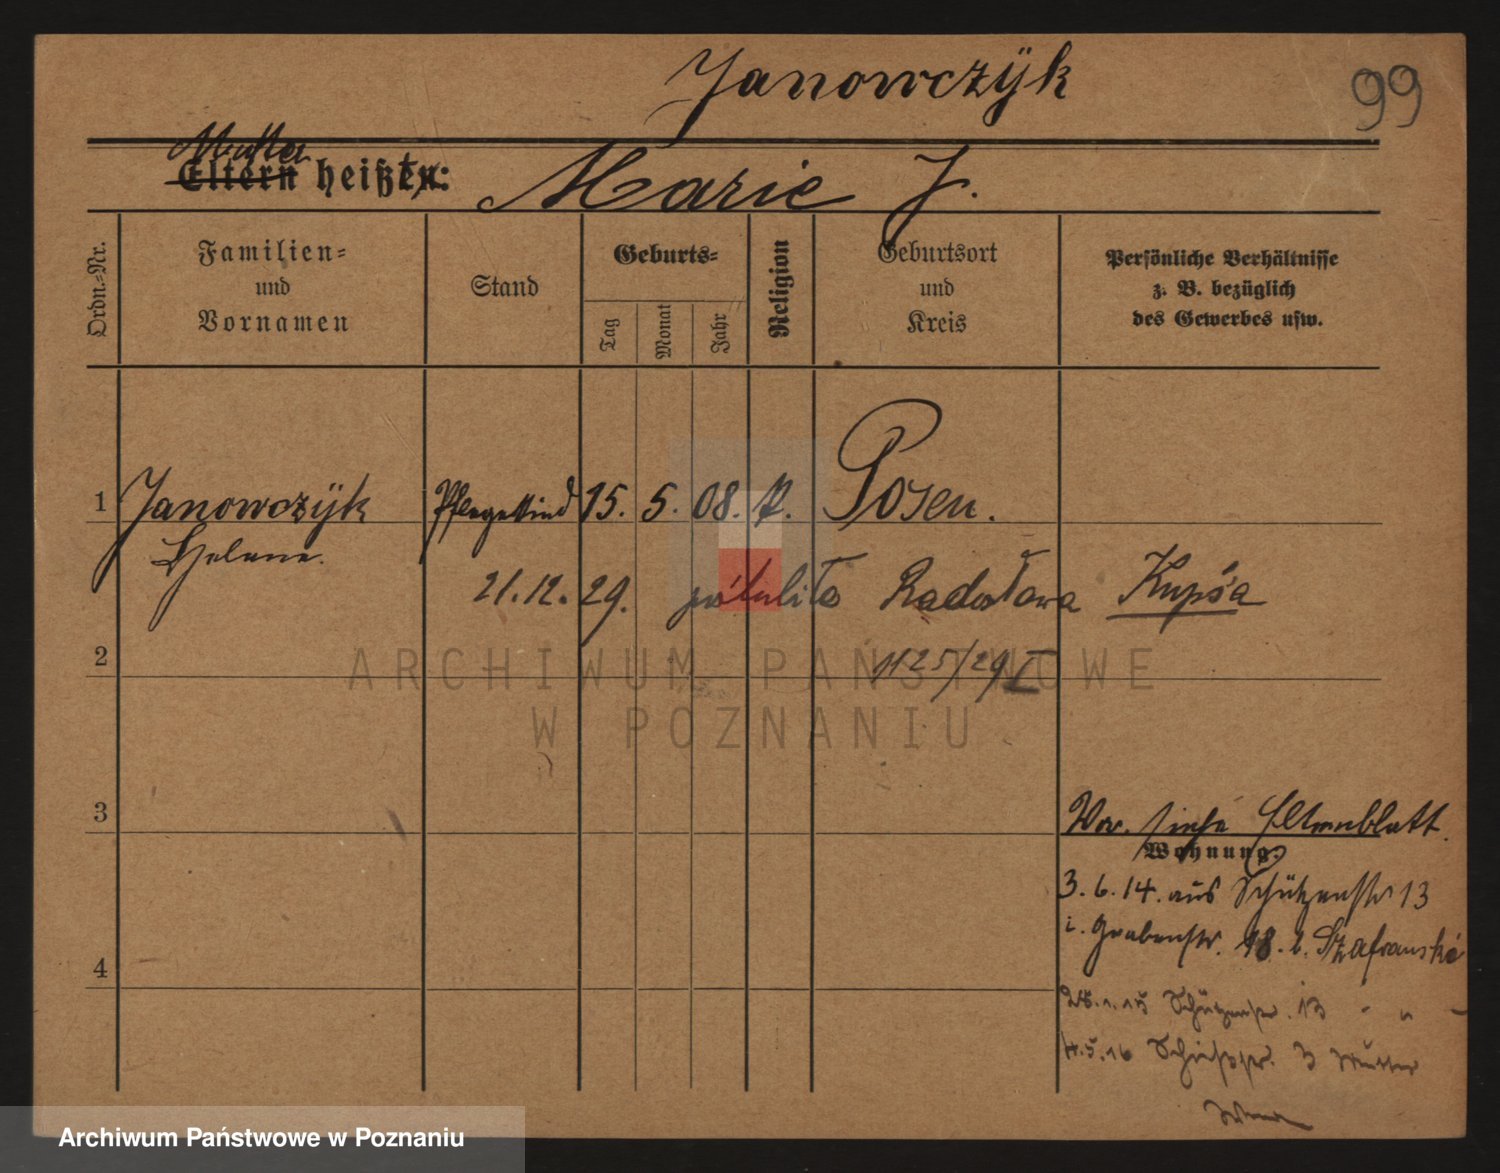 Janowczÿk
99
Mutter
Eltern heißt:
Marie J.
Ordn.=Nr.
Familien=
und
Vornamen
Stand
Geburts=
Tag
Monat
Jahr
Religion
Geburtsort
und
Kreis
Persönliche Verhältnisse
z. B. bezüglich
des Gewerbes usw.
1
Janowczÿk
Pflegekind
15. 5. 08. k.
Posen.
Helene.
21.12.29. poślubiła Radosława Kupśa
1125/29 I
2
ARCHIWUM PAŃSTWOWE
W POZNANIU
3
Vor. siehe Elternblatt.
Wohnung:
3.6.14. aus Schützenstr 13
i. Grabenstr. 18. b. Szafranski
4
28.1.15 Schützenstr. 13 " " "
4.5.16 Schießstr. 3 Mutter
Archiwum Państwowe w Poznaniu